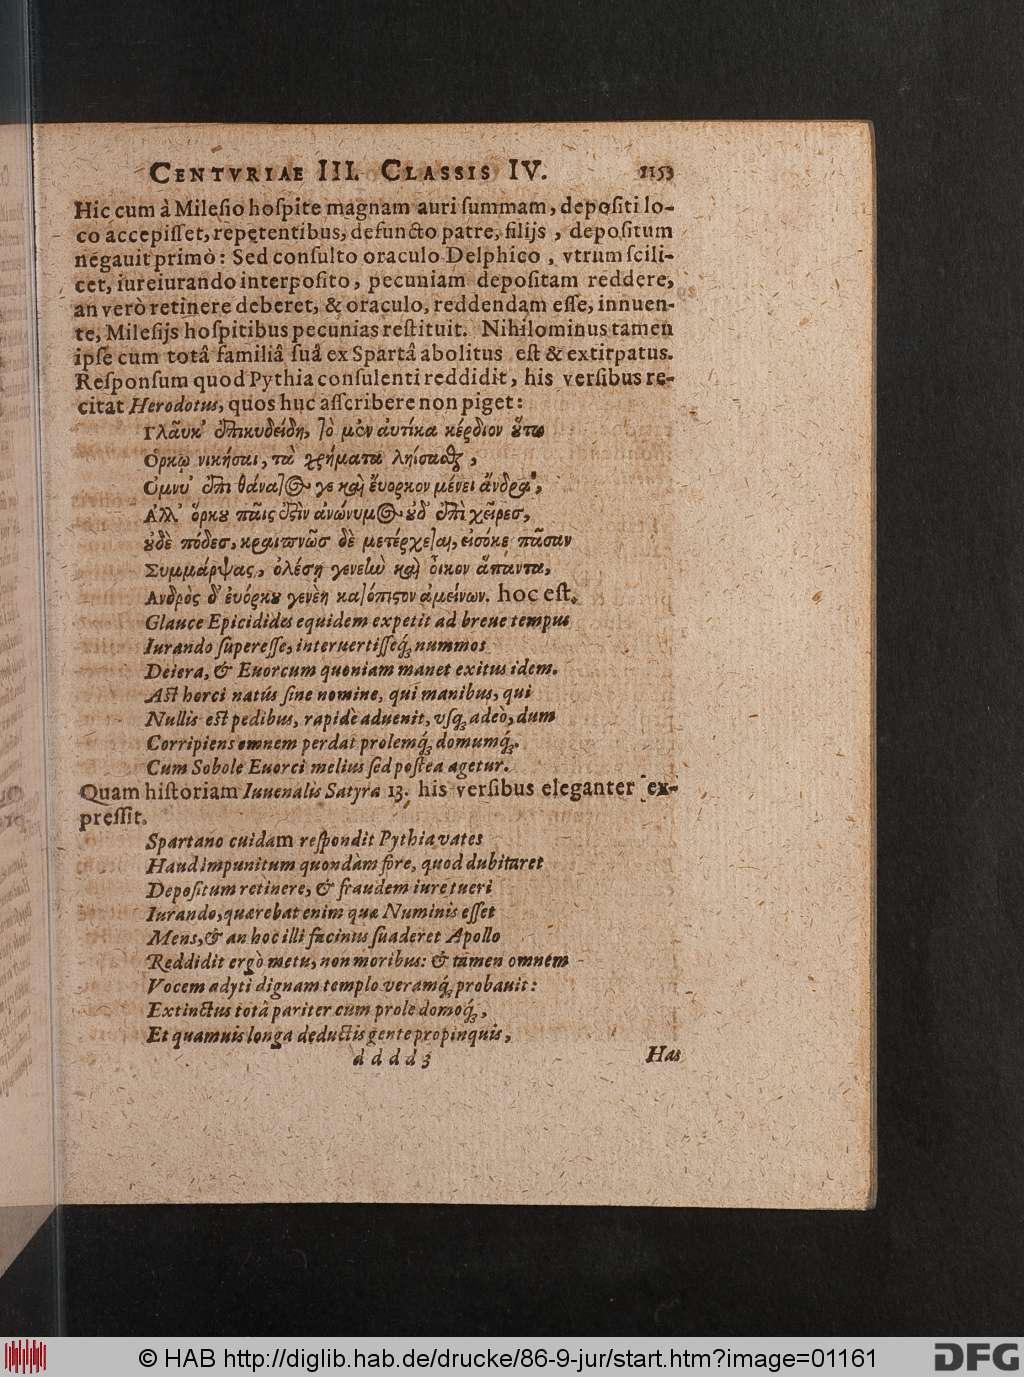 CENTVRIAE III. CLASSIS IV. 1153
Hic cum à Mileſio hoſpite magnam auri ſummam, depoſiti lo-
co accepiſſet, repetentibus, defuncto patre, filijs, depoſitum
negauit primò: Sed conſulto oraculo Delphico, vtrum ſcili-
cet, iureiurando interpoſito, pecuniam depoſitam reddere,
an verò retinere deberet, & oraculo, reddendam eſſe, innuen-
te, Mileſijs hoſpitibus pecunias reſtituit. Nihilominus tamen
ipſe cum totâ familiâ ſuâ ex Spartâ abolitus eſt & extirpatus.
Reſponſum quod Pythia conſulenti reddidit, his verſibus re-
citat Herodotus, quos huc aſſcribere non piget:
Γλαῦκ' ἐπικυδείδη, τὸ μὲν αὐτίκα κέρδιον ὅτω
Ὁρκῳ νικήσαι, τὰ χρήματα ληίσασθαι,
Ομνυ' ἐπὶ θάνατος γε καὶ ἔυορκον μένει ἄνδρα,
Αλλ' ὅρκου παῖς ἐστὶν ἀνώνυμος οὐδ' ἐπὶ χεῖρες,
οὐδὲ πόδες, κραιπνῶς δὲ μετέρχεται, εἰσόκε πᾶσαν
Συμμάρψας, ὀλέσῃ γενεὴν καὶ οἶκον ἅπαντα,
Ανδρὸς δ' ἐυόρκου γενὲη κατόπιστον ἀμείνων. hoc eſt,
Glauce Epicidides equidem expetit ad breue tempus
Iurando ſupereſſe, interuertiſſeq́; nummos
Deiera, & Euorcum quoniam manet exitus idem.
Aſt horci natús ſine nomine, qui manibus, qui
Nullis eſt pedibus, rapidè aduenit, vſq; adeò, dum
Corripiens omnem perdat prolemq́; domumq́;.
Cum Sobole Euorci melius ſed poſtea agetur.
Quam hiſtoriam Iuuenalis Satyra 13. his verſibus eleganter ex-
preſſit.
Spartano cuidam reſpondit Pythia vates
Haud impunitum quondàm fore, quod dubitaret
Depoſitum retinere, & fraudem iure tueri
Iurando, quærebat enim quæ Numinis eſſet
Mens, & an hoc illi facinus ſuaderet Apollo
Reddidit ergò metu, non moribus: & tamen omnem
Vocem adyti dignam templo veramq́; probauit:
Extinctus totâ pariter cum prole domoq́;,
Et quamuis longa deductis gente propinquis,
d d d d 3 Has
© HAB http://diglib.hab.de/drucke/86-9-jur/start.htm?image=01161
DFG